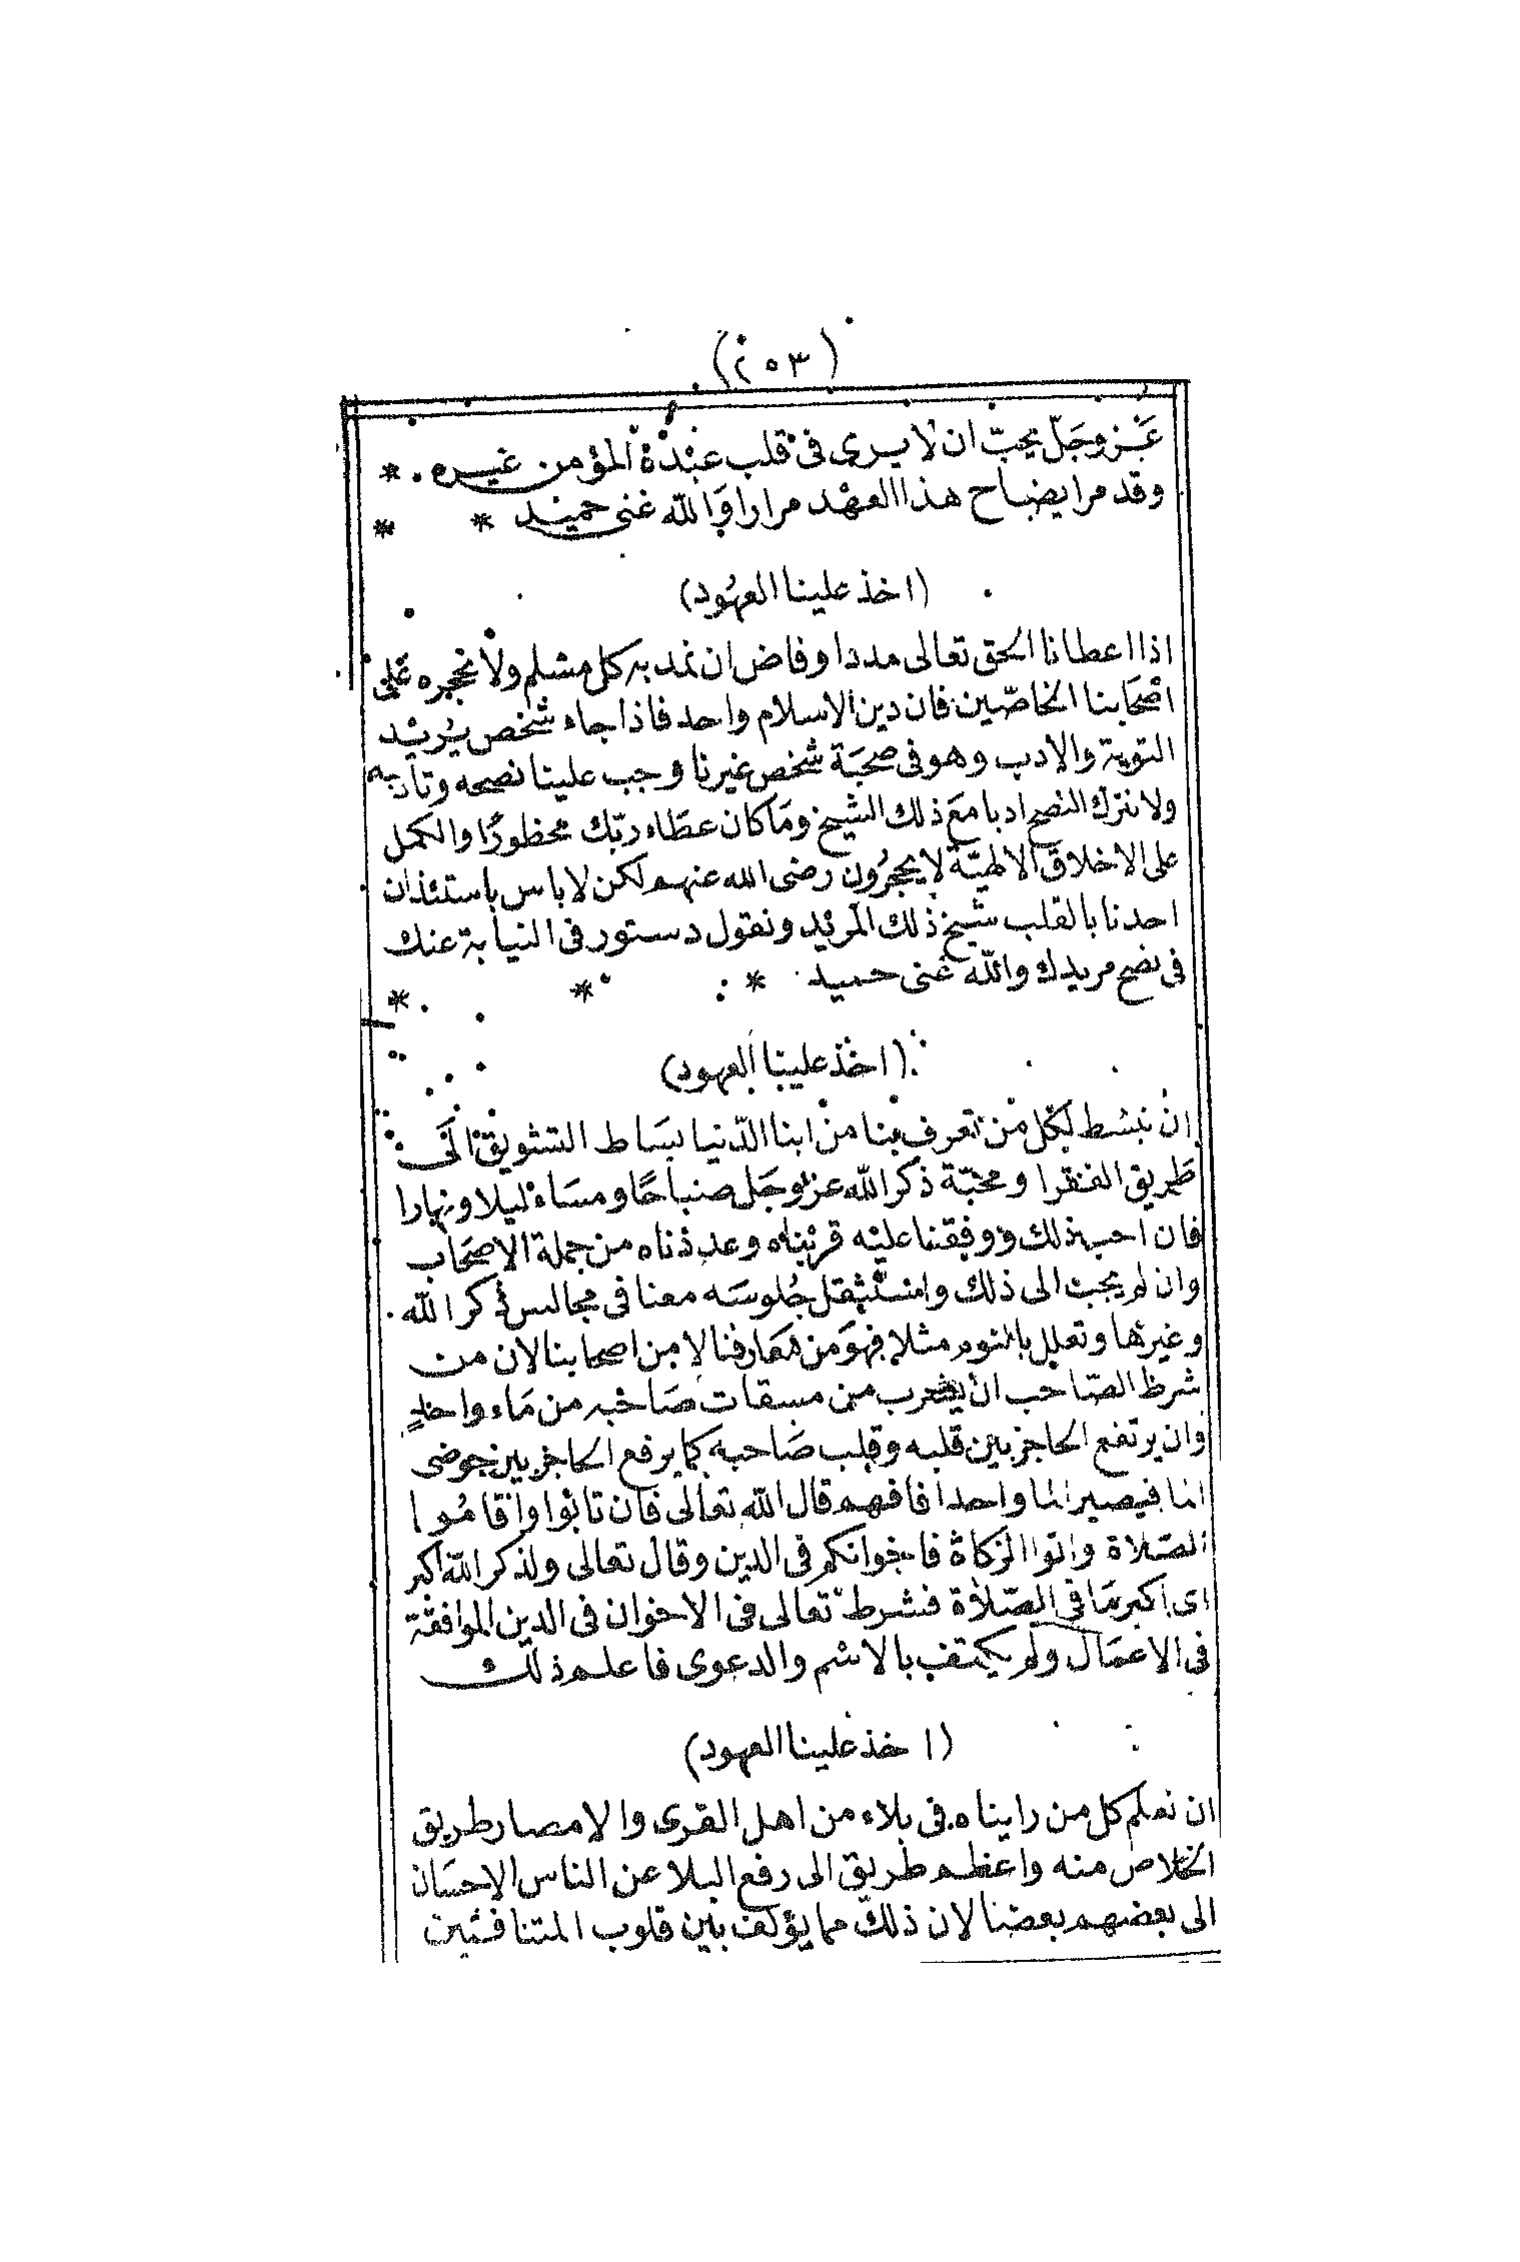 (٢٥٣)
عز وجل يحب ان لا يرى فى قلب عبده المؤمن غيره *
وقد مر ايضاح هذا العهد مرارا والله غنى حميد * *
(اخذ علينا العهود)
اذا اعطانا الحق تعالى مددا وفاض ان نمد به كل مسلم ولا نحجره على
اصحابنا الخاصّين فان دين الاسلام واحد فاذا جاء شخص يريد
التوبة والادب وهو فى صحبة شخص غيرنا وجب علينا نصحه وتاديبه
ولا نترك النصح ادبا مع ذلك الشيخ وما كان عطاء ربّك محظورًا والكمل
على الاخلاق الالهيّة لا يحجرون رضى الله عنهم لكن لا باس باستئذان
احدنا بالقلب شيخ ذلك المريد ونقول دستور فى النيابة عنك
فى نصح مريدك والله غنى حميد * * *
(اخذ علينا العهود)
ان نبسط لكل من تعرف بنا من ابنا الدّنيا بساط التشويق الى
طريق الفقرا ومحبّة ذكر الله عز وجل صباحًا ومساء ليلا ونهارا
فان احب ذلك ووفقنا عليه قربناه وعددناه من جملة الاصحاب
وان لم يجب الى ذلك واستثقل جلوسه معنا فى مجالس ذكر الله
وغيرها وتعلل بالنوم مثلا فهو من معارفنا لا من اصحابنا لان من
شرط الصّاحب ان يشرب من مسقات صاحبه من ماء واحد
وان يرتفع الحاجز بين قلبه وقلب صاحبه كما يرفع الحاجز بين حوضى
الما فيصير الما واحدا فافهم قال الله تعالى فان تابوا واقاموا
الصّلاة واتوا الزكاة فاخوانكم فى الدين وقال تعالى ولذكر الله اكبر
اى اكبر ما فى الصّلاة فشرط تعالى فى الاخوان فى الدين الموافقة
فى الاعمال ولم يكتف بالاسم والدعوى فاعلم ذلك
(اخذ علينا العهود)
ان نعلم كل من رايناه فى بلاء من اهل القرى والامصار طريق
الخلاص منه واعظم طريق الى رفع البلا عن الناس الاحسان
الى بعضهم بعضا لان ذلك مما يؤلف بين قلوب المتنافسين